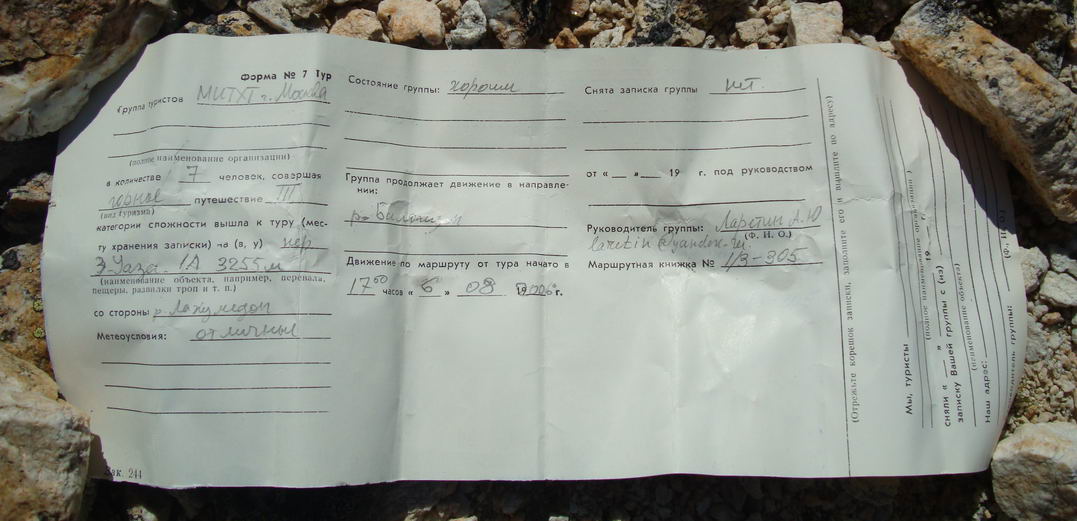 Форма № 7 Тур
Группа туристов МИТХТ г. Москва
(полное наименование организации)
в количестве 7 человек, совершая
горное путешествие III
(вид туризма)
категории сложности вышла к туру (мес-
ту хранения записки) на (в, у) пер.
1А 3255 м
(наименование объекта, например, перевала,
пещеры, развилки троп и т. п.)
со стороны р.
Метеоусловия: отличные
Зак. 244
Состояние группы: хорошим
Группа продолжает движение в направле-
нии:
р.
Движение по маршруту от тура начато в
17 00 часов « 6 » 08 2006 г.
Снята записка группы нет.
от « » 19 г. под руководством
Руководитель группы: Ларетин А.Ю
(Ф. И. О.)
laretin@yandex.ru
Маршрутная книжка № 1/3-305
(Отрежьте корешок записки, заполните его и вышлите по адресу)
Мы, туристы
(полное наименование организации)
сняли « » 19 г.
записку Вашей группы с (из)
(наименование объекта)
Наш адрес:
группы: